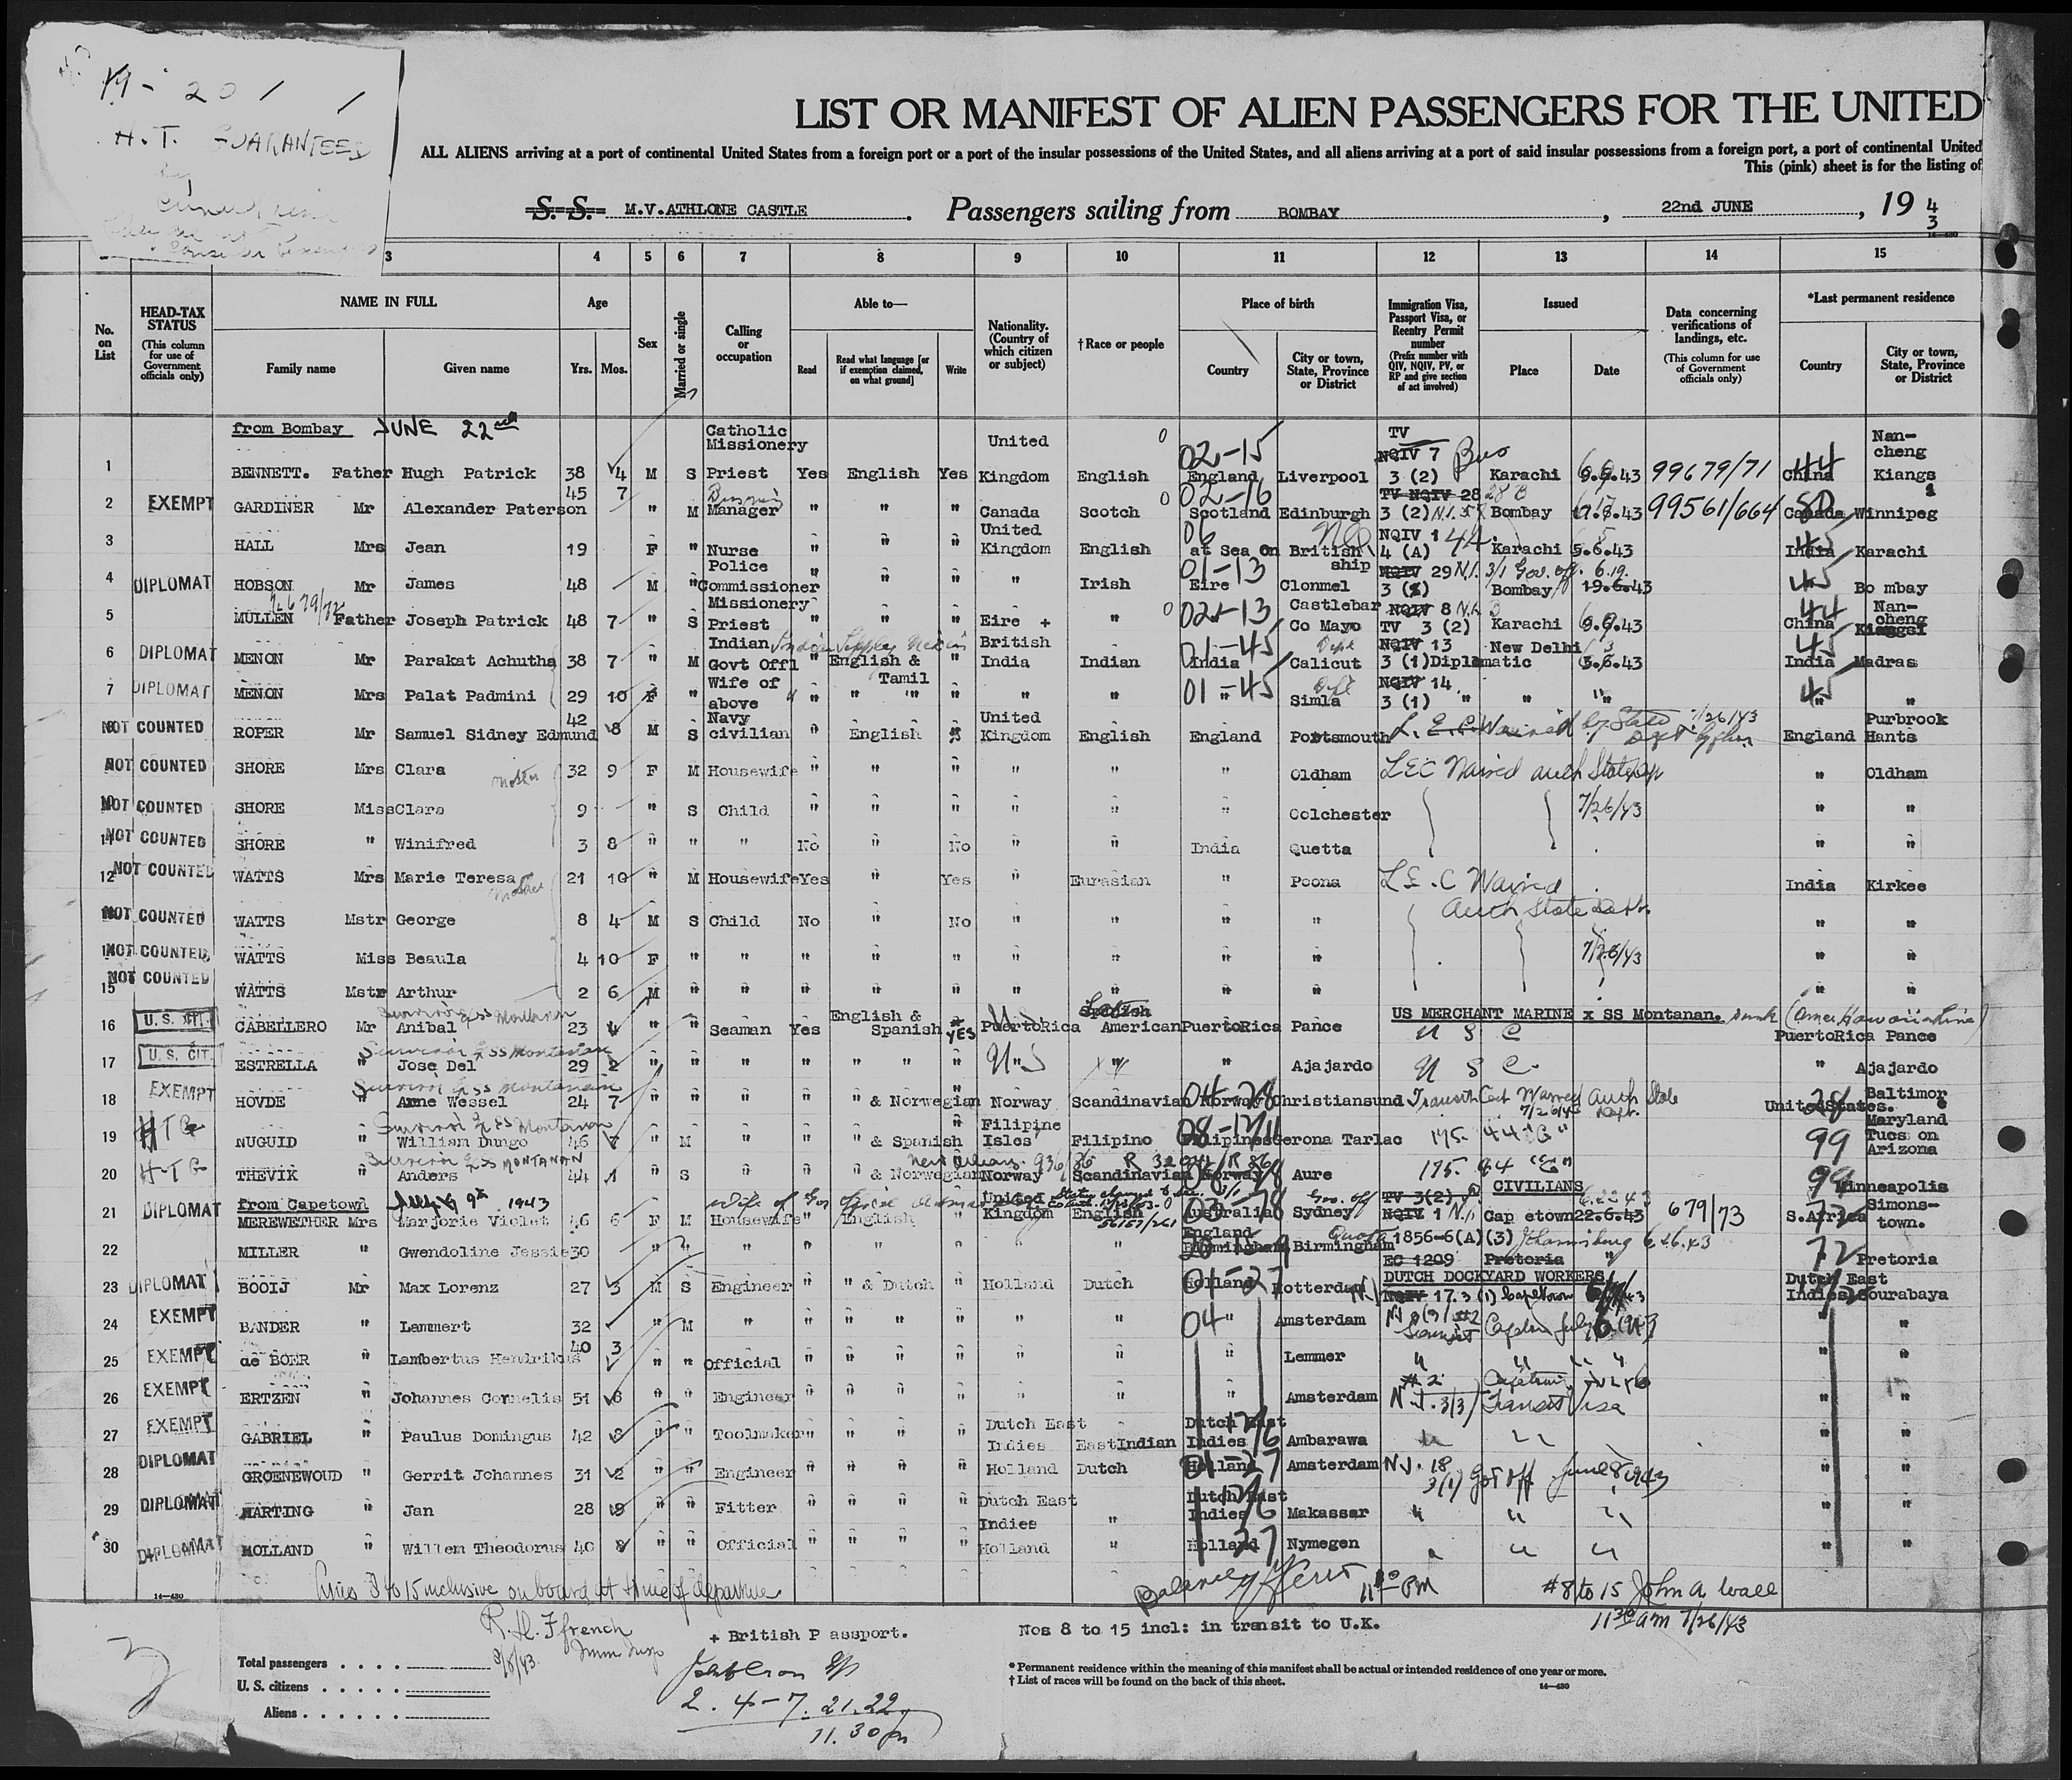 19- 201 1
H.T. GUARANTEED
by
LIST OR MANIFEST OF ALIEN PASSENGERS FOR THE UNITED
ALL ALIENS arriving at a port of continental United States from a foreign port or a port of the insular possessions of the United States, and all aliens arriving at a port of said insular possessions from a foreign port, a port of continental United
This (pink) sheet is for the listing of
S. S. M.V. ATHLONE CASTLE. Passengers sailing from BOMBAY, 22nd JUNE, 19 43
3 4 5 6 7 8 9 10 11 12 13 14 15
No. on List
HEAD-TAX STATUS (This column for use of Government officials only)
NAME IN FULL Family name Given name
Age Yrs. Mos.
Sex
Married or single
Calling or occupation
Able to— Read Read what language [or if exemption claimed, on what ground] Write
Nationality. (Country of which citizen or subject)
†Race or people
Place of birth Country City or town, State, Province or District
Immigration Visa, Passport Visa, or Reentry Permit number (Prefix number with QIV, NQIV, PV, or RP and give section of act involved)
Issued Place Date
Data concerning verifications of landings, etc. (This column for use of Government officials only)
*Last permanent residence Country City or town, State, Province or District
from Bombay JUNE 22nd
1 BENNETT. Father Hugh Patrick 38 4 M S Catholic Missionery Priest Yes English Yes United Kingdom English 02-15 England Liverpool TV NQIV 7 3 (2) Karachi 6.9.43 99679/71 44 China Nan-cheng Kiangs i
2 EXEMPT GARDINER Mr Alexander Paterson 45 7 " M Business Manager " " " Canada Scotch 02-16 Scotland Edinburgh TV NQIV 28 3 (2) Bombay 17.6.43 99561/664 80 Canada Winnipeg
3 HALL Mrs Jean 19 F " Nurse " " " United Kingdom English 06 at Sea On British ship NQIV 1 4 (A) Karachi 5.6.43 45 India Karachi
4 DIPLOMAT HOBSON Mr James 48 M " Police Commissioner " " " " Irish 01-13 Eire Clonmel NQIV 29 N.I. 3/1 Gov. off. 6.19. Bombay 19.6.43 45 Bo mbay
5 MULLEN Father Joseph Patrick 48 7 " S Missionery Priest " " " Eire + " 02-13 Castlebar Co Mayo NQIV 8 TV 3 (2) Karachi 6.9.43 44 China Nan-cheng Kiangsi
6 DIPLOMAT MENON Mr Parakat Achutha 38 7 " M Indian Govt Offl " English & Tamil " British India Indian 01-45 India Calicut NQIV 13 3 (1) Diplomatic New Delhi 3.6.43 45 India Madras
7 DIPLOMAT MENON Mrs Palat Padmini 29 10 F " Wife of above " " " " " " 01-45 " Simla NQIV 14 3 (1) " " " 45 " "
8 NOT COUNTED ROPER Mr Samuel Sidney Edmund 42 8 M S Navy civilian " English " United Kingdom English England Portsmouth L.E.C. Waived by State Dept 7/26/43 England Purbrook Hants
NOT COUNTED SHORE Mrs Clara Mother 32 9 F M Housewife " " " " " " Oldham LEC Waived auth State Dep " Oldham
10 NOT COUNTED SHORE Miss Clara 9 " S Child " " " " " " Colchester 7/26/43 " "
11 NOT COUNTED SHORE " Winifred 3 8 " " " No " No " " India Quetta " "
12 NOT COUNTED WATTS Mrs Marie Teresa Mother 21 10 " M Housewife Yes " Yes " Eurasian " Poona L.E.C Waived India Kirkee
NOT COUNTED WATTS Mstr George 8 4 M S Child No " No " " " " Auth State Dept. " "
NOT COUNTED WATTS Miss Beaula 4 10 F " " " " " " " " " 7/26/43 " "
15 NOT COUNTED WATTS Mstr Arthur 2 6 M " " " " " " " " " " "
16 U.S. CIT. CABELLERO Mr Anibal Survivor of SS Montanan 23 4 " " Seaman Yes English & Spanish YES PuertoRica American PuertoRica Pance US MERCHANT MARINE x SS Montanan. sunk (Amer Hawaiian Line) U S C PuertoRica Pance
17 U.S. CIT. ESTRELLA " Jose Del Survivor of SS Montanan 29 2 " " " " " " " U"S " " Ajajardo U S C " Ajajardo
18 EXEMPT HOVDE " Arne Wessel Survivor of SS Montanan 24 7 " " " " " & Norwegian " Norway Scandinavian 04-28 Norway Christiansund Transit Cert Waived Auth State Dept. 7/26/4 28 United States. Baltimore Maryland
19 HTG NUGUID " William Dungo Survivor of SS Montanan 46 7 " M " " " & Spanish " Filipine Isles Filipino Filipines Gerona Tarlac 175. 44 "G" 99 Tucson Arizona
20 HTG THEVIK " Anders Survivor of SS MONTANAN 44 1 " S " " & Norwegian Norway Scandinavian Norway Aure 175. 44 "G" 99 Minneapolis
from Capetown July 9th 1943 CIVILIANS
21 DIPLOMAT MEREWETHER Mrs Marjorie Violet 46 6 F M Housewife " English " United Kingdom English 03-78 Australia Sydney Gov. off TV 3(2) NQIV 1 Cap etown 22.6.43 679/73 72 S.Africa Simons-town.
22 MILLER " Gwendoline Jessie 30 " " " " " " " " England Birmingham Birmingham Quota 1856-6(A)(3) EC 1209 Pretoria " 72 Pretoria
DUTCH DOCKYARD WORKERS
23 DIPLOMAT BOOIJ Mr Max Lorenz 27 3 M S Engineer " " & Dutch " Holland Dutch 01-27 Holland Rotterdam NQIV 17.3 (1) Capetown Dutch East Indies Sourabaya
24 EXEMPT BANDER " Lammert 32 " M " " " " " " " 04 " Amsterdam Transit July 6 1943 " "
25 EXEMPT de BOER " Lambertus Hendrikus 40 3 " " Official " " " " " " " Lemmer " " " " " "
26 EXEMPT ERTZEN " Johannes Cornelis 51 8 " " Engineer " " " " " " " Amsterdam # 2 N.I. 3/3/ Transit Visa " "
27 EXEMPT GABRIEL " Paulus Domingus 42 8 " " Toolmaker " " " " Dutch East Indies EastIndian Dutch East Indies Ambarawa " " " "
28 DIPLOMAT GROENEWOUD " Gerrit Johannes 31 2 " " Engineer " " " " Holland Dutch 01-27 Holland Amsterdam N.I. 18 3/(1) Gov off June 8, 1943 " "
29 DIPLOMAT HARTING " Jan 28 8 " " Fitter " " " " Dutch East Indies " Dutch East Indies Makassar " " " " "
30 DIPLOMAT HOLLAND " Willem Theodorus 40 8 " " Official " " " " Holland " 27 Holland Nymegen " " " " "
Lines 8 to 15 inclusive on board at time of departure
R. H. Ffrench
Imm Insp
11 30 PM
#8 to 15 John A Wall
11 30 am 7/26/43
+ British P assport.
Nos 8 to 15 incl: in transit to U.K.
Total passengers . . . .
U. S. citizens . . . . .
Aliens . . . . . .
2. 4-7. 21.22
11.30 pm
* Permanent residence within the meaning of this manifest shall be actual or intended residence of one year or more.
† List of races will be found on the back of this sheet.
14—430